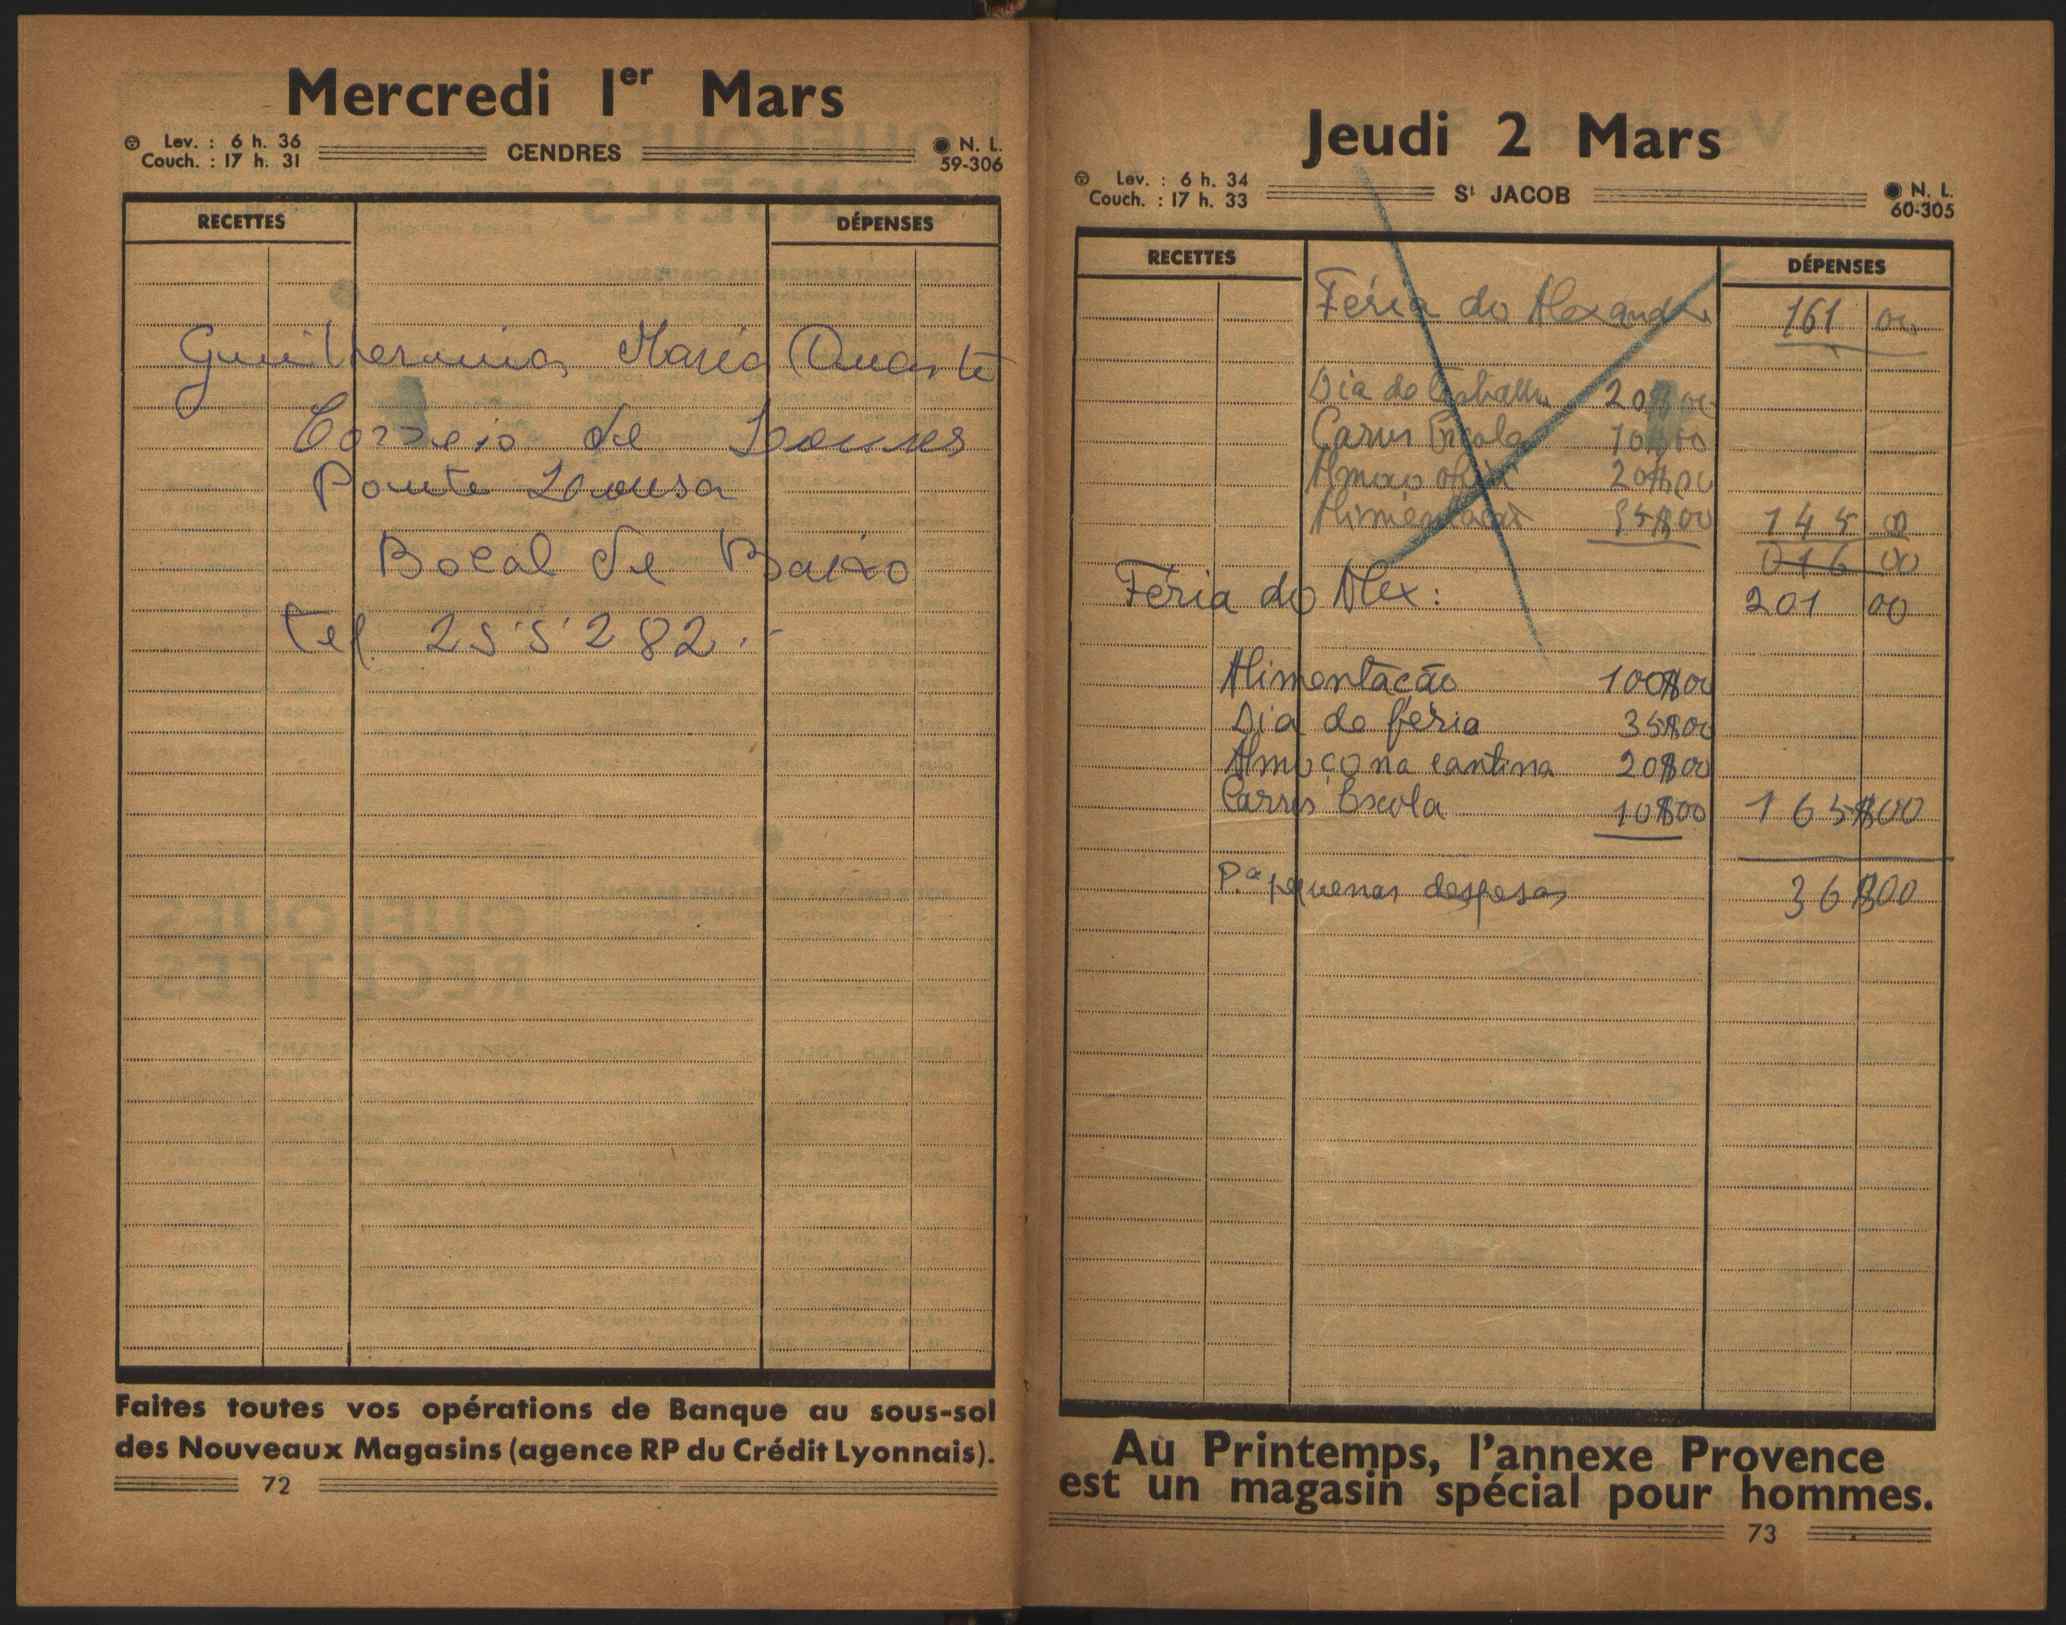 Mercredi 1er Mars
Lev. : 6 h. 36
Couch. : 17 h. 31
CENDRES
N. L.
59-306
RECETTES
DÉPENSES
Guilhermina Maria Duarte
Correio de Loures
Ponte Lousa
Bocal de Baixo
Tel. 255282.-
Faites toutes vos opérations de Banque au sous-sol
des Nouveaux Magasins (agence RP du Crédit Lyonnais).
72
Jeudi 2 Mars
Lev. : 6 h. 34
Couch. : 17 h. 33
St JACOB
N. L.
60-305
RECETTES
DÉPENSES
Féria do Alexandre 161 00
Dia do trabalho 20$00
Carris Escola 10$00
Almoço 20$00
Alimentação 95$00 145 00
016 00
Féria do Alex: 201 00
Alimentação 100$00
Dia de féria 35$00
Almoço na cantina 20$00
Carris Escola 10$00 165$00
P.ª pequenas despesas 36$00
Au Printemps, l'annexe Provence
est un magasin spécial pour hommes.
73